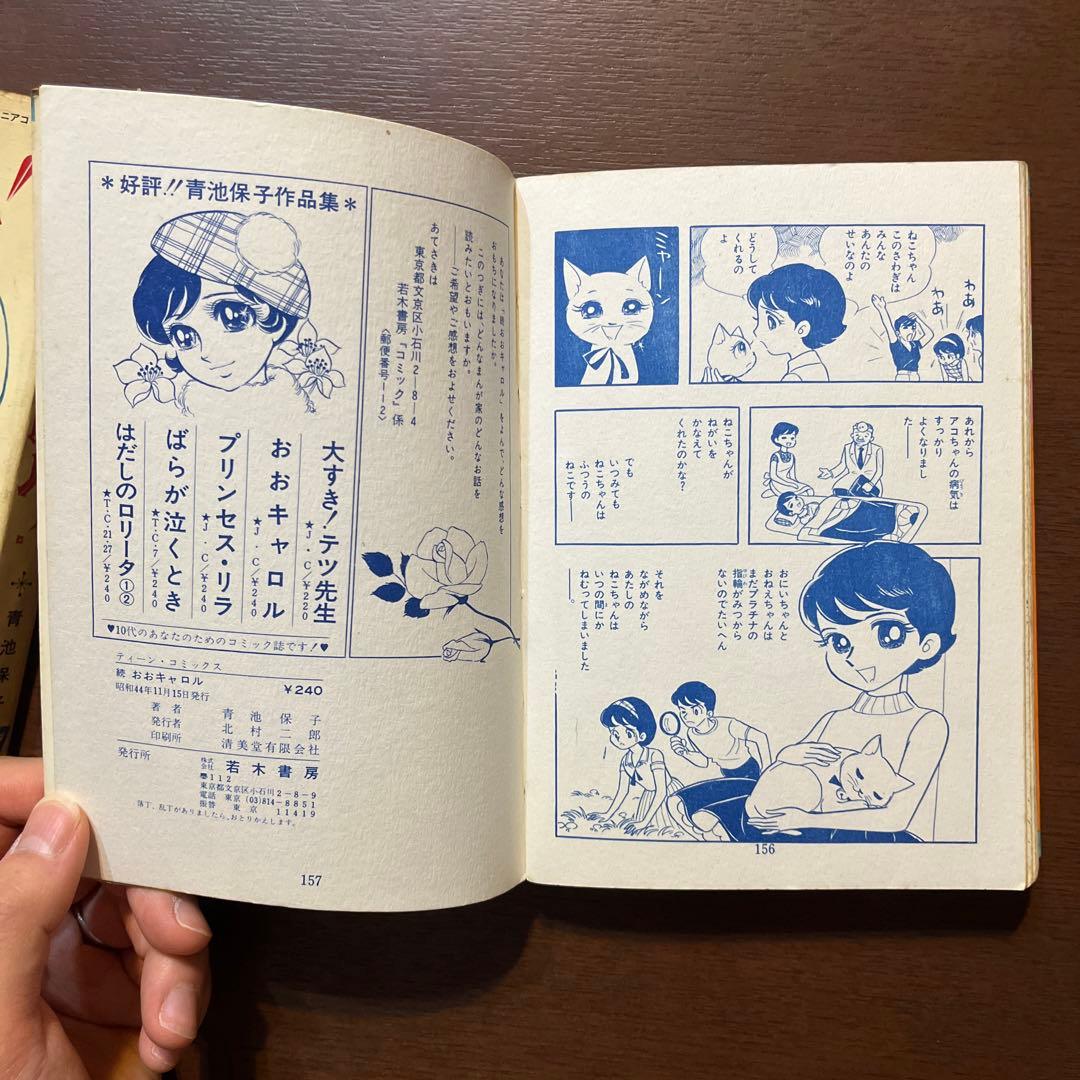 ねこちゃん
このさわぎは
みんな
あんたの
せいなのよ
どうして
くれるの
よ
わあ
わあ
ミャーン
あれから
アコちゃんの病気は
すっかり
よくなりまし
た――
ねこちゃんが
ねがいを
かなえて
くれたのかな?
でも
いつみても
ねこちゃんは
ふつうの
ねこです――
おにいちゃんと
おねえちゃんは
まだプラチナの
指輪がみつから
ないのでたいへん
それを
ながめながら
あたしの
ねこちゃんは
いつの間にか
ねむってしまいました
――。
156
あなたは「続おおキャロル」をよんで、どんな感想を
おもちになりましたか。
このつぎには、どんなまんが家のどんなお話を
読みたいとおもいますか。
ご希望やご感想をおよせください。
あてさきは
東京都文京区小石川2-8-4
若木書房「コミック」係
〈郵便番号112〉
*好評!!青池保子作品集*
大すき!テツ先生
★J・C/¥220
おおキャロル
★J・C/¥240
プリンセス・リラ
★J・C/¥240
ばらが泣くとき
★T・C・7/¥240
はだしのロリータ①②
★T・C・21・27/¥240
♥10代のあなたのためのコミック誌です!♥
ティーン・コミックス
続 おおキャロル ¥240
昭和44年11月15日発行
著者 青池保子
発行者 北村二郎
印刷所 清美堂有限会社
発行所 株式会社 若木書房
〒112
東京都文京区小石川2-8-9
電話 東京(03)814-8851
振替 東京 11419
落丁、乱丁がありましたら、おとりかえします。
157
ニアコ
青池保子